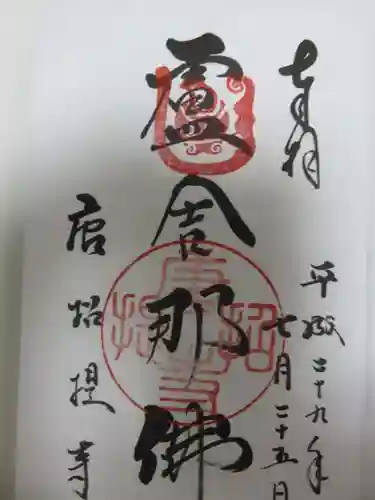 奉拝
平成二十九年
七月二十五日
盧舎那佛
唐招提寺